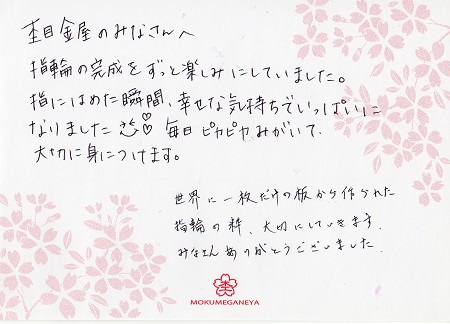 杢目金屋のみなさんへ
指輪の完成をずっと楽しみにしていました。
指にはめた瞬間、幸せな気持ちでいっぱいに
なりました 毎日ピカピカみがいて、
大切に身につけます。
世界に一枚だけの板から作られた
指輪の粋、大切にしていきます.
みなさんありがとうございました.
杢
MOKUMEGANEYA